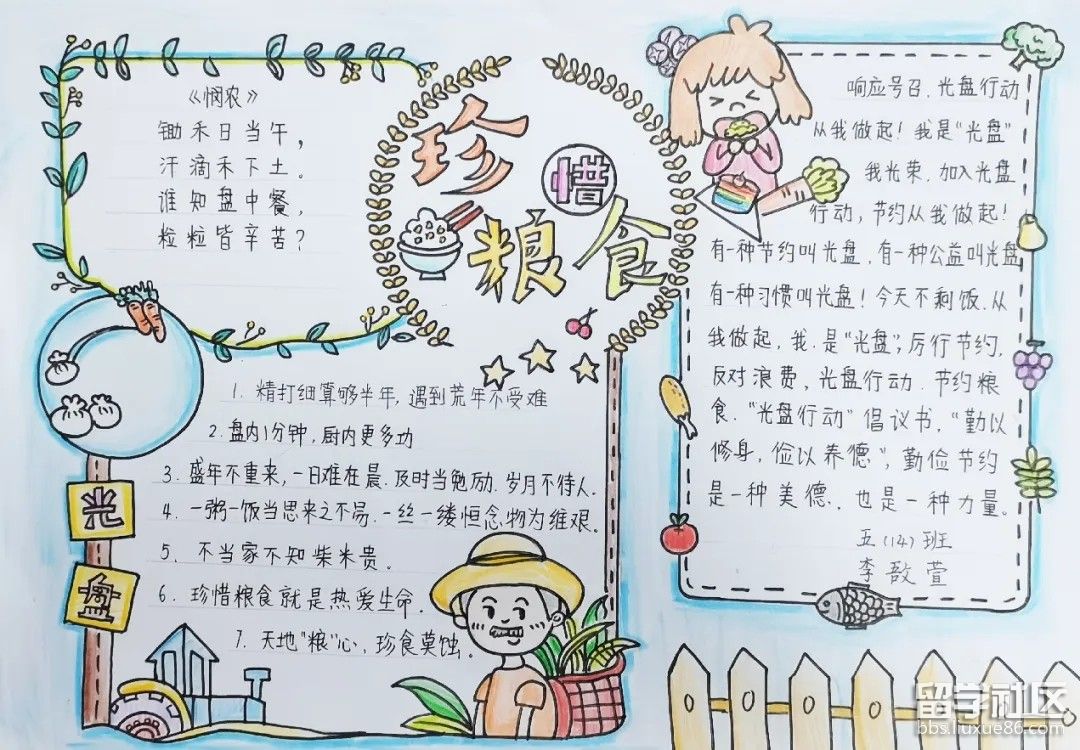 《悯农》
锄禾日当午，
汗滴禾下土。
谁知盘中餐，
粒粒皆辛苦？
珍惜
粮食
1. 精打细算够半年，遇到荒年不受难
2. 盘内1分钟，厨内更多功
3. 盛年不重来，一日难在晨.及时当勉励.岁月不待人.
4. 一粥一饭当思来之不易.一丝一缕恒念物为维艰。
5. 不当家不知柴米贵。
6. 珍惜粮食就是热爱生命.
7. 天地"粮"心，珍食莫蚀。
光
盘
响应号召.光盘行动
从我做起！我是"光盘"
我光荣.加入光盘
行动，节约从我做起！
有一种节约叫光盘.有一种公益叫光盘
有一种习惯叫光盘！今天不剩饭.从
我做起，我.是"光盘"，厉行节约，
反对浪费，光盘行动.节约粮
食."光盘行动"倡议书，"勤以
修身，俭以养德"，勤俭节约
是一种美德.也是一种力量。
五（14）班
李敔萱
留学社区
bbs.liuxue86.com